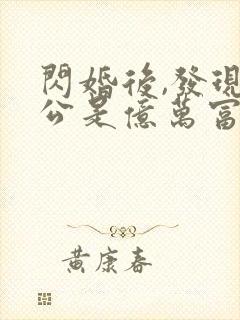 閃婚後,發現
公是億萬富
黃康春